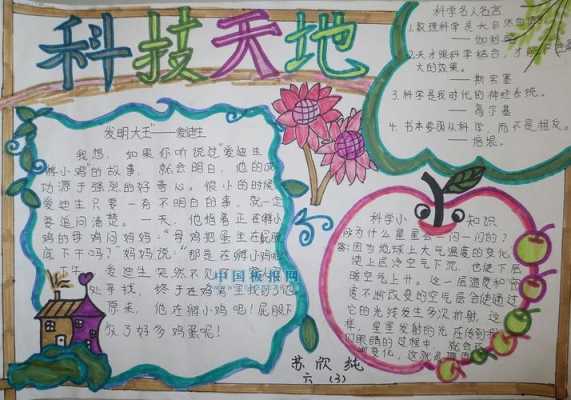 科技天地
科学名人名言
1.数理科学是大自然
——伽利略
2.天才跟科学结合,才能
大的效果。
——斯宾塞
3.科学是我时代的神经系统。
——高尔基
4.书本要跟从科学,而不是相反。
——培根。
"发明大王"——爱迪生
我想,如果你听说过"爱迪生
孵小鸡"的故事,就会明白,他的成
功源于强烈的好奇心。很小的时候
爱迪生只要一有不明白的事,就一定
要追问清楚。一天,他指着正在孵小
鸡的母鸡问妈妈:"母鸡把蛋坐在屁股
底下干吗?"妈妈说:"那是在孵小鸡呢
下午,爱迪生突然不见了,
处寻找,终于在鸡窝里找到了他
原来,他在孵小鸡吧!屁股下
放了好多鸡蛋呢!
中国板报网
科学小知识
为什么星星会一闪一闪的?
答:因为地球上大气温度的变化
使上层冷空气下沉,也使下层
暖空气上升。这一层温度和密
度不断改变的空气层会使通过
它的光线发生多次折射,这
样,星星发射的光在传到
们眼睛的过程中,就会
变化,这就
苏欣纯
六(3)